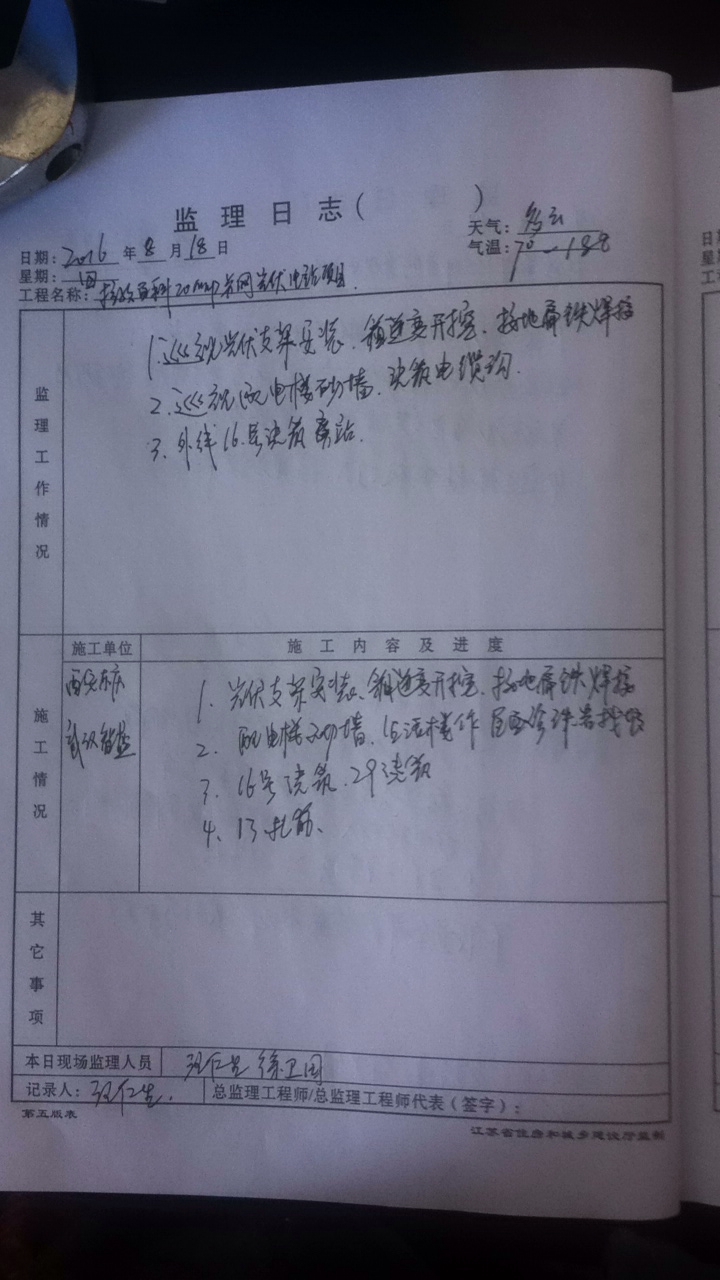 监理日志(    )
日期：2016年8月18日 天气：多云
星期：四 气温：7°—18°
工程名称：20MWP并网光伏电站项目
监理工作情况
1.巡视光伏支架安装、箱逆变开挖、接地扁铁焊接
2.巡视配电楼砂墙、浇筑电缆沟.
3.外线16号浇筑
施工情况
施工单位 施工内容及进度
1.光伏支架安装、箱逆变开挖、接地扁铁焊接
2.配电楼砂墙、生活楼作
3.16号浇筑、29浇筑
4、13扎筋、
其它事项
本日现场监理人员 徐卫国
记录人： 总监理工程师/总监理工程师代表（签字）：
第五版表 江苏省住房和城乡建设厅监制